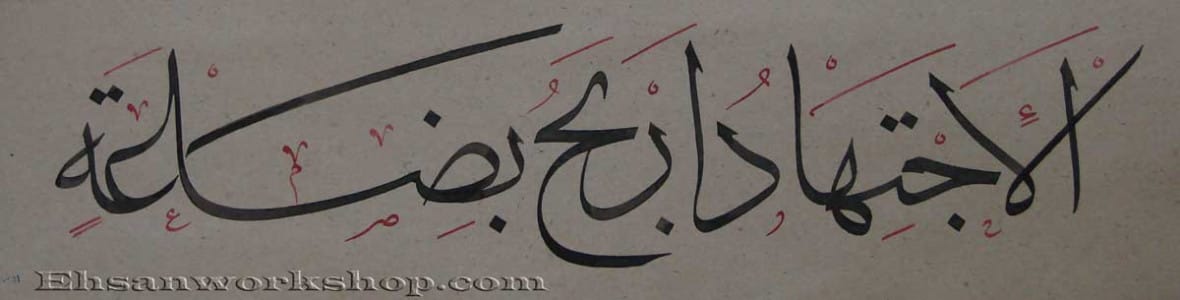 الإجْتِهَادُ أَرْبَحُ بِضَاعَةٍ
Ehsanworkshop.com